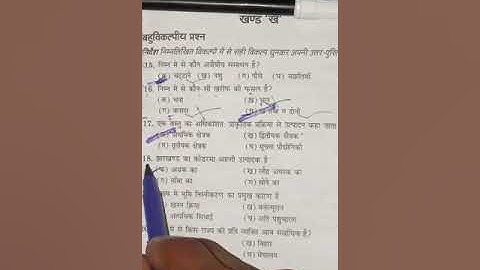 खण्ड 'ख'
बहुविकल्पीय प्रश्न
निर्देश निम्नलिखित विकल्पों में से सही विकल्प चुनकर अपनी उत्तर-पुस्ति
15. निम्न में से कौन अजैविक संसाधन है?
(क) चट्टानें (ख) पशु (ग) पौधे (घ) मछलियाँ
16. निम्न में से कौन-सी खरीफ की फसल है?
(क) चना (ख)
(ग) कपास (घ) दोनों
17. एक वस्तु का अधिकांशतः प्राकृतिक प्रक्रिया से उत्पादन कहा जाता
(क) प्राथमिक क्षेत्रक (ख) द्वितीयक क्षेत्रक
(ग) तृतीयक क्षेत्रक (घ) सूचना प्रौद्योगिकी
18. झारखण्ड का कोडरमा अग्रणी उत्पादक है
अभ्रक का (ख) लौह अयस्क का
(ग) ताँबा का (घ) सोने का
में भूमि निम्नीकरण का प्रमुख कारण है
खनन क्रिया (ख) वनोन्मूलन
अत्यधिक सिंचाई (घ) अति पशुचारण
में से किस राज्य की प्रति व्यक्ति आय सर्वाधिक है?
(ख) बिहार
(घ) मेघालय